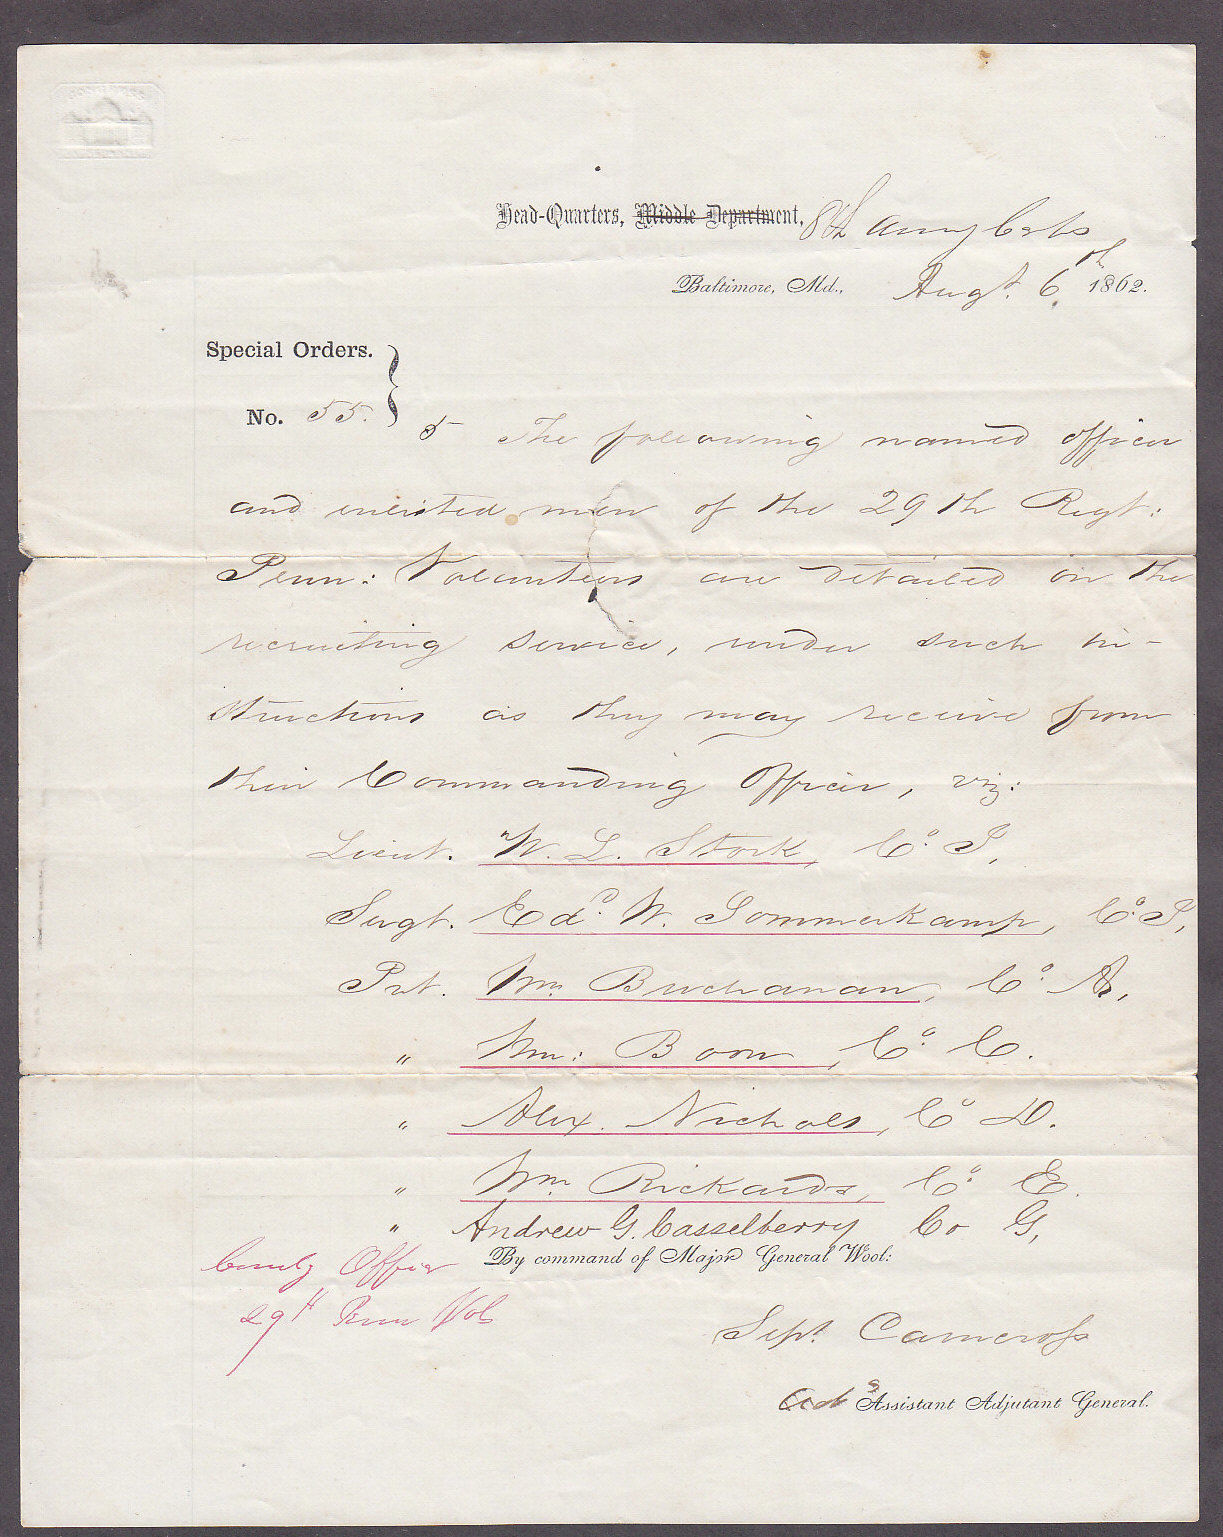 Head-Quarters, Middle Department, 8th Army Corps
Baltimore, Md., Augt. 6th 1862.
Special Orders.
No. 55.
5 The following named officer
and enlisted men of the 29th Regt:
Penn: Volunteers are detailed on the
recruiting service, under such in-
structions as they may receive from
their Commanding Officer, viz:
Lieut. W. L. Stork, Co. I,
Sergt. Edd. W. Sommerkamp, Co. I,
Pvt. Wm. Buchanan, Co. A,
" Wm: Boon, Co. C.
" Alex. Nichols, Co D.
" Wm. Rickards, Co. E.
" Andrew G. Casselberry Co G,
By command of Major General Wool:
Comdg Officer
29th Penn Vols
Sept. Carncross
Actg Assistant Adjutant General.